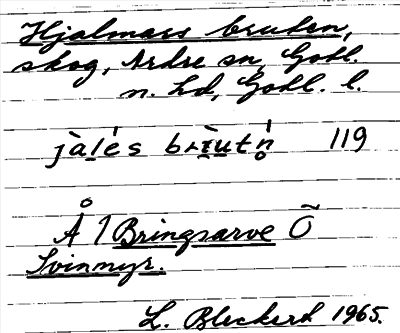 Hjalmars bruten,
skog, Ardre sn, Gotl.
n. hd, Gotl. l.
jàlés brìutń̥ 119
Å 1 Bringsarve Õ
Svinmyr.
L. Bleckert 1965.